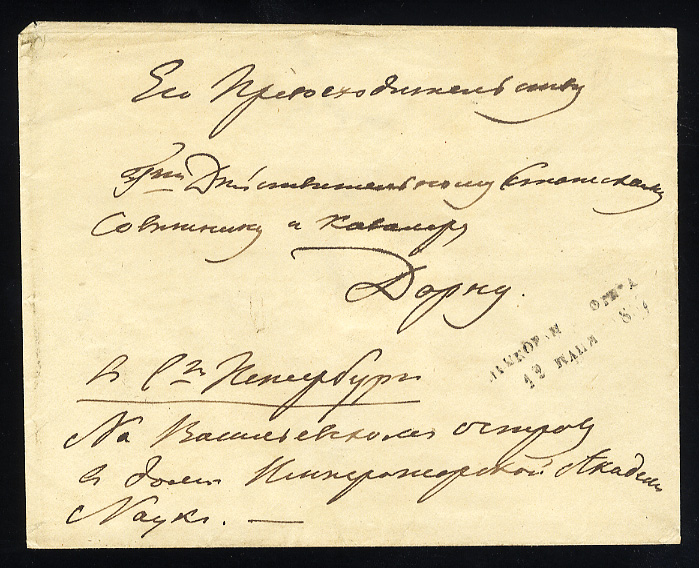 Его Превосходительству
Гну Действительному Статскому
Советнику и Кавалеру
Дорну.
в С П Петербург
На Васильевском острову
в доме Императорской Академии
Наук. —
19 МАЯ